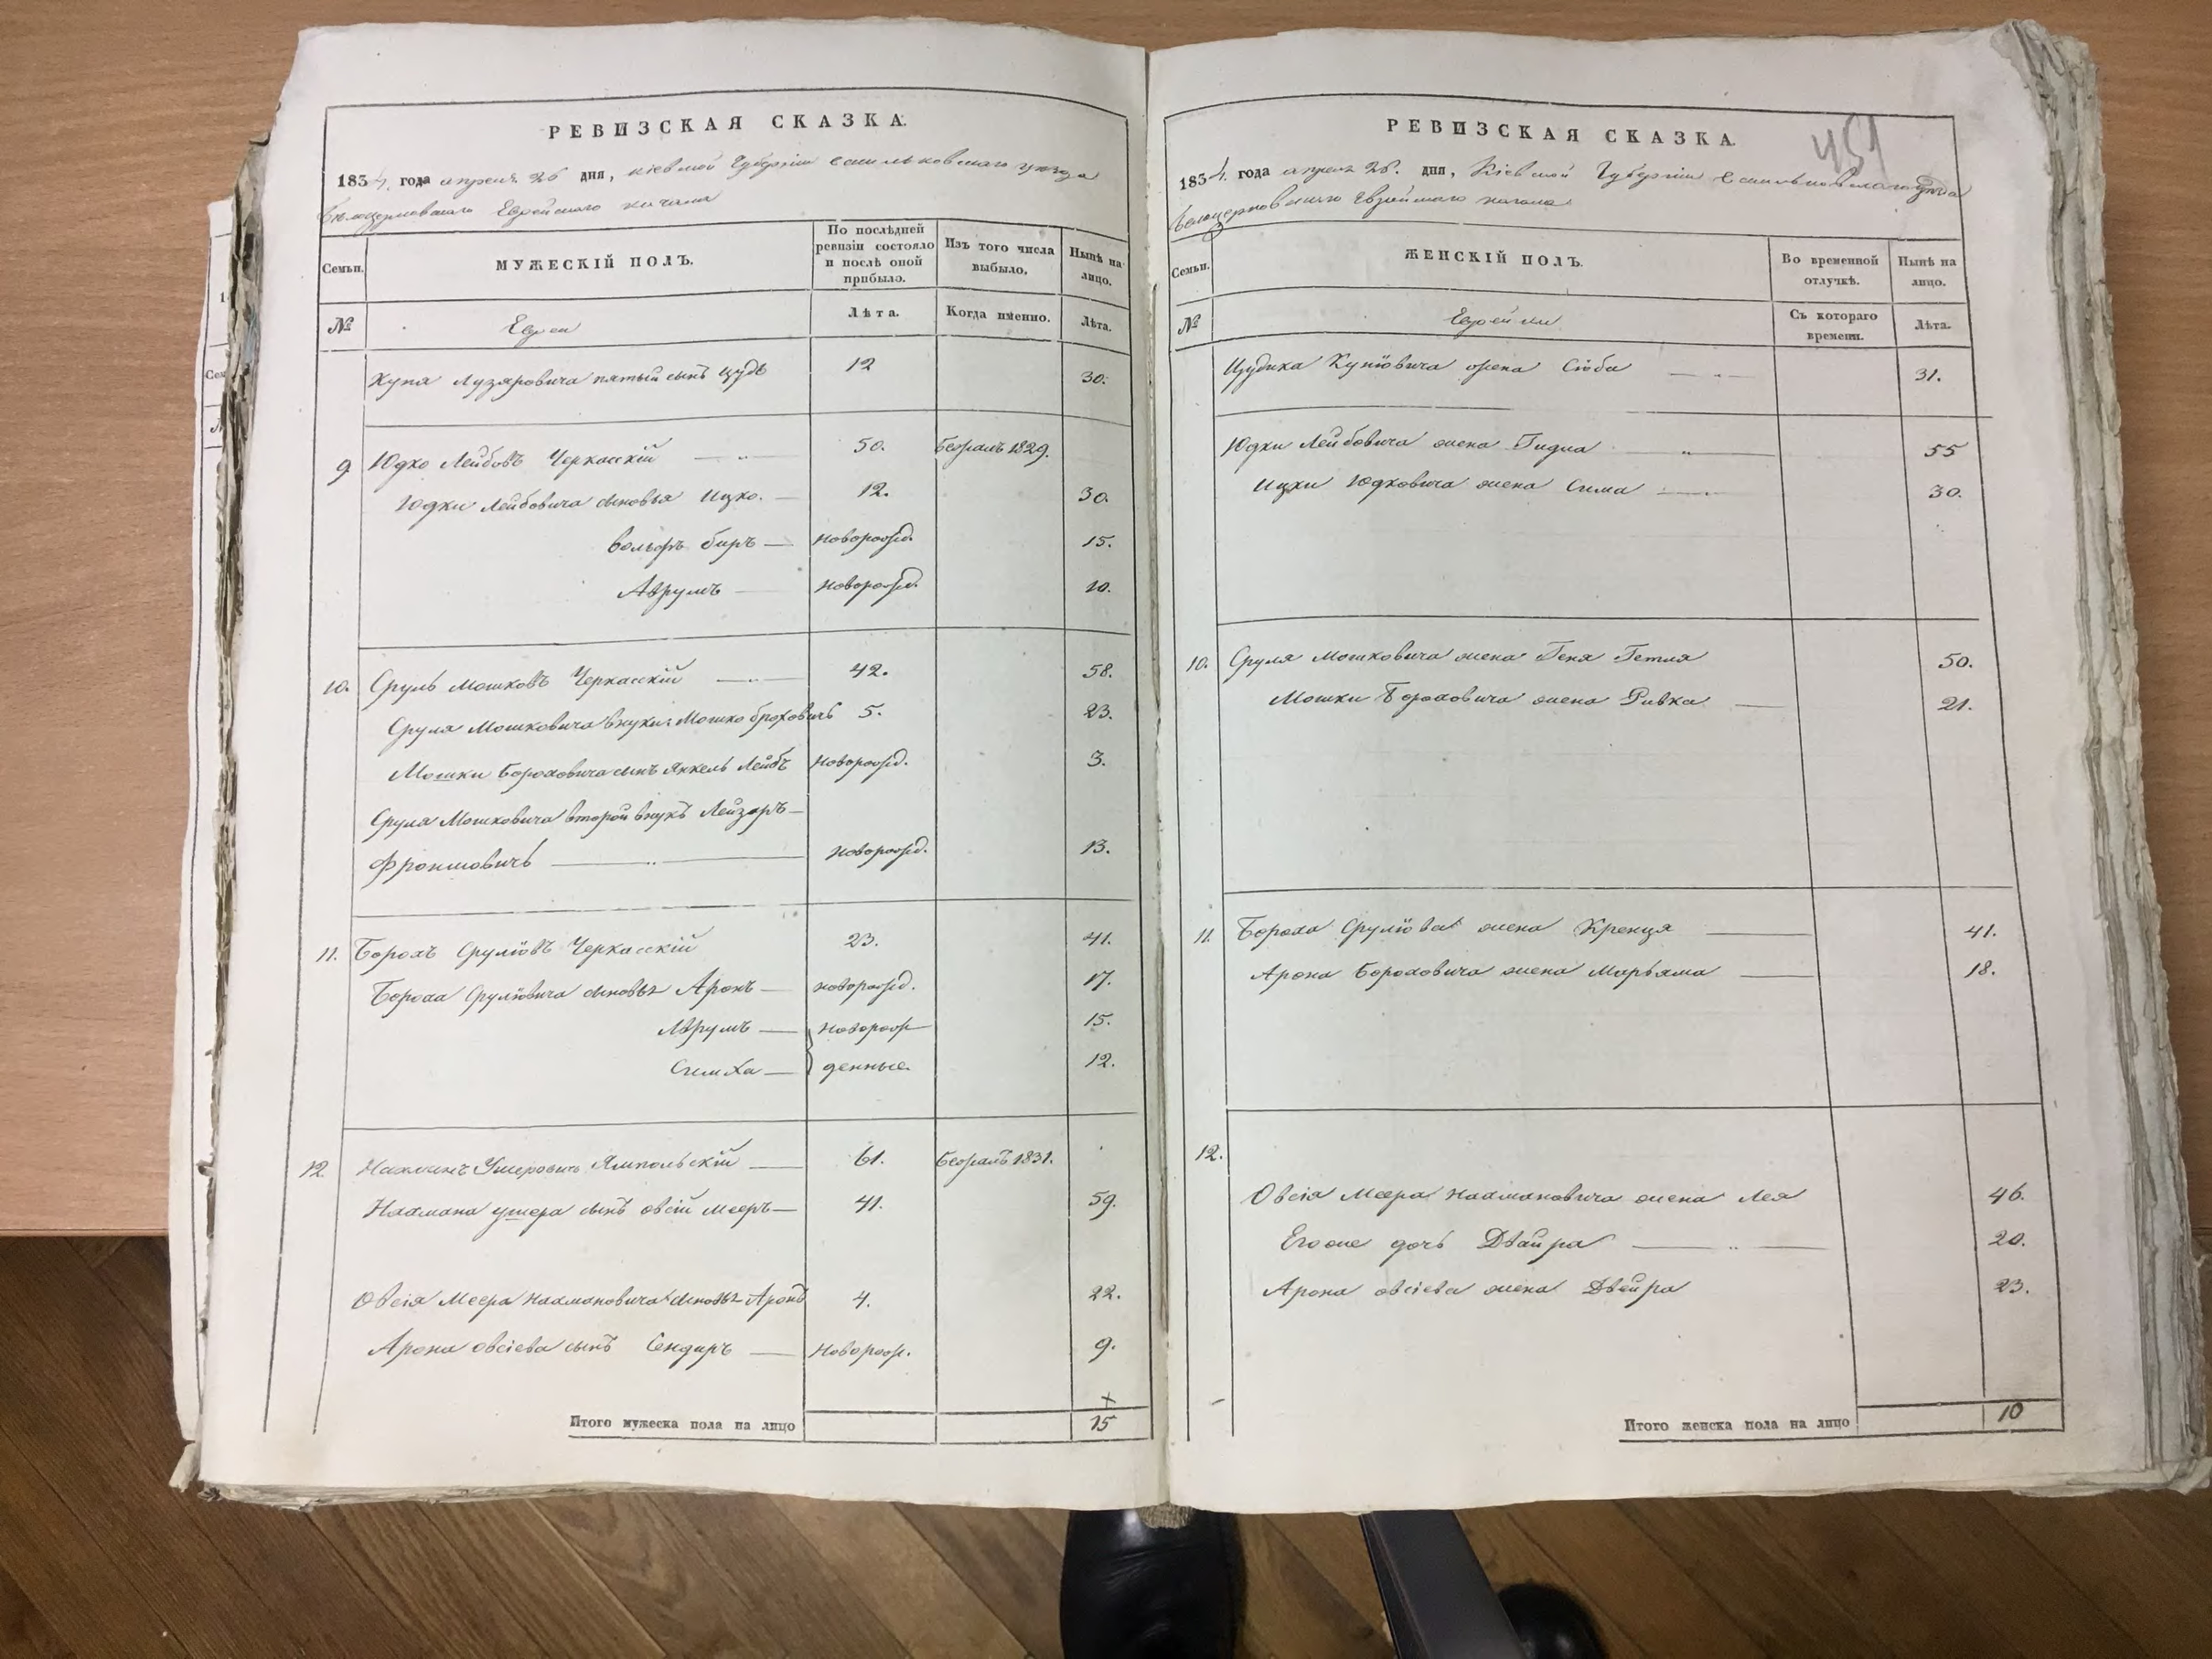 РЕВИЗСКАЯ СКАЗКА.
1834. года апреля 26 дня, Кіевской Губерніи Васильковскаго уезда
Белоцерковскаго Еврейскаго кагала
Семьи.
МУЖЕСКІЙ ПОЛЪ.
По послѣдней ревизіи состояло и послѣ оной прибыло.
Изъ того числа выбыло.
Нынѣ на лицо.
№
Евреи
Лѣта.
Когда именно.
Лѣта.
Хуня Лузяровича пятый сынъ 12 30.
9 Юдко Лейбовъ Черкасскій — „ — 50. 1829.
Юдки Лейбовича сыновья Ицко. — 12. 30.
Вольфъ беръ — новорожд. 15.
Аврумъ — новорожд. 10.
10. Сруль Мошковъ Черкасскій — „ — 42. 58.
Сруля Мошковича внуки: Мошко Броховичъ 5. 23.
Мошки Бороховича сынъ Янкель Лейбъ новорожд. 3.
Сруля Мошковича второй внукъ Лейзоръ —
Фроимовичъ — „ — новорожд. 13.
11. Борохъ Срулiовъ Черкасскій 23. 41.
Бороха Срулiовича сыновья Аронъ — новорожд. 17.
Аврумъ — новорож 15.
Симха — денные. 12.
12. Нахманъ Ушеровичъ Ямпольскій — 61. 1831.
Нахмана ушера сынъ овсій Мееръ — 41. 59.
Овсія Меера Нахмановича сыновья Аронъ 4. 22.
Арона овсіева сынъ Сендеръ — новорож. 9.
+
Итого мужеска пола на лицо 15
451
РЕВИЗСКАЯ СКАЗКА.
1834. года апреля 26. дня, Кіевской Губерніи Васильковскаго уезда
Белоцерковскаго Еврейскаго кагала
Семьи.
ЖЕНСКІЙ ПОЛЪ.
Во временной отлучкѣ.
Нынѣ на лицо.
№
Еврейки
Съ котораго времени.
Лѣта.
Куніовича жена Сіоба — „ — 31.
Юдки Лейбовича жена Гидля — „ — 55
Ицки Юдковича жена Сима — 30.
10. Сруля Мошковича жена Геня Гетля 50.
Мошки Бороховича жена Ривка — 21.
11. Бороха Срулiова жена Кренця — 41.
Арона Бороховича жена Марьяма — 18.
12.
Овсія Меера Нахмановича жена Лея 46.
Егоже дочь Двайра — „ — 20.
Арона овсіева жена Двейра 23.
Итого женска пола на лицо 10